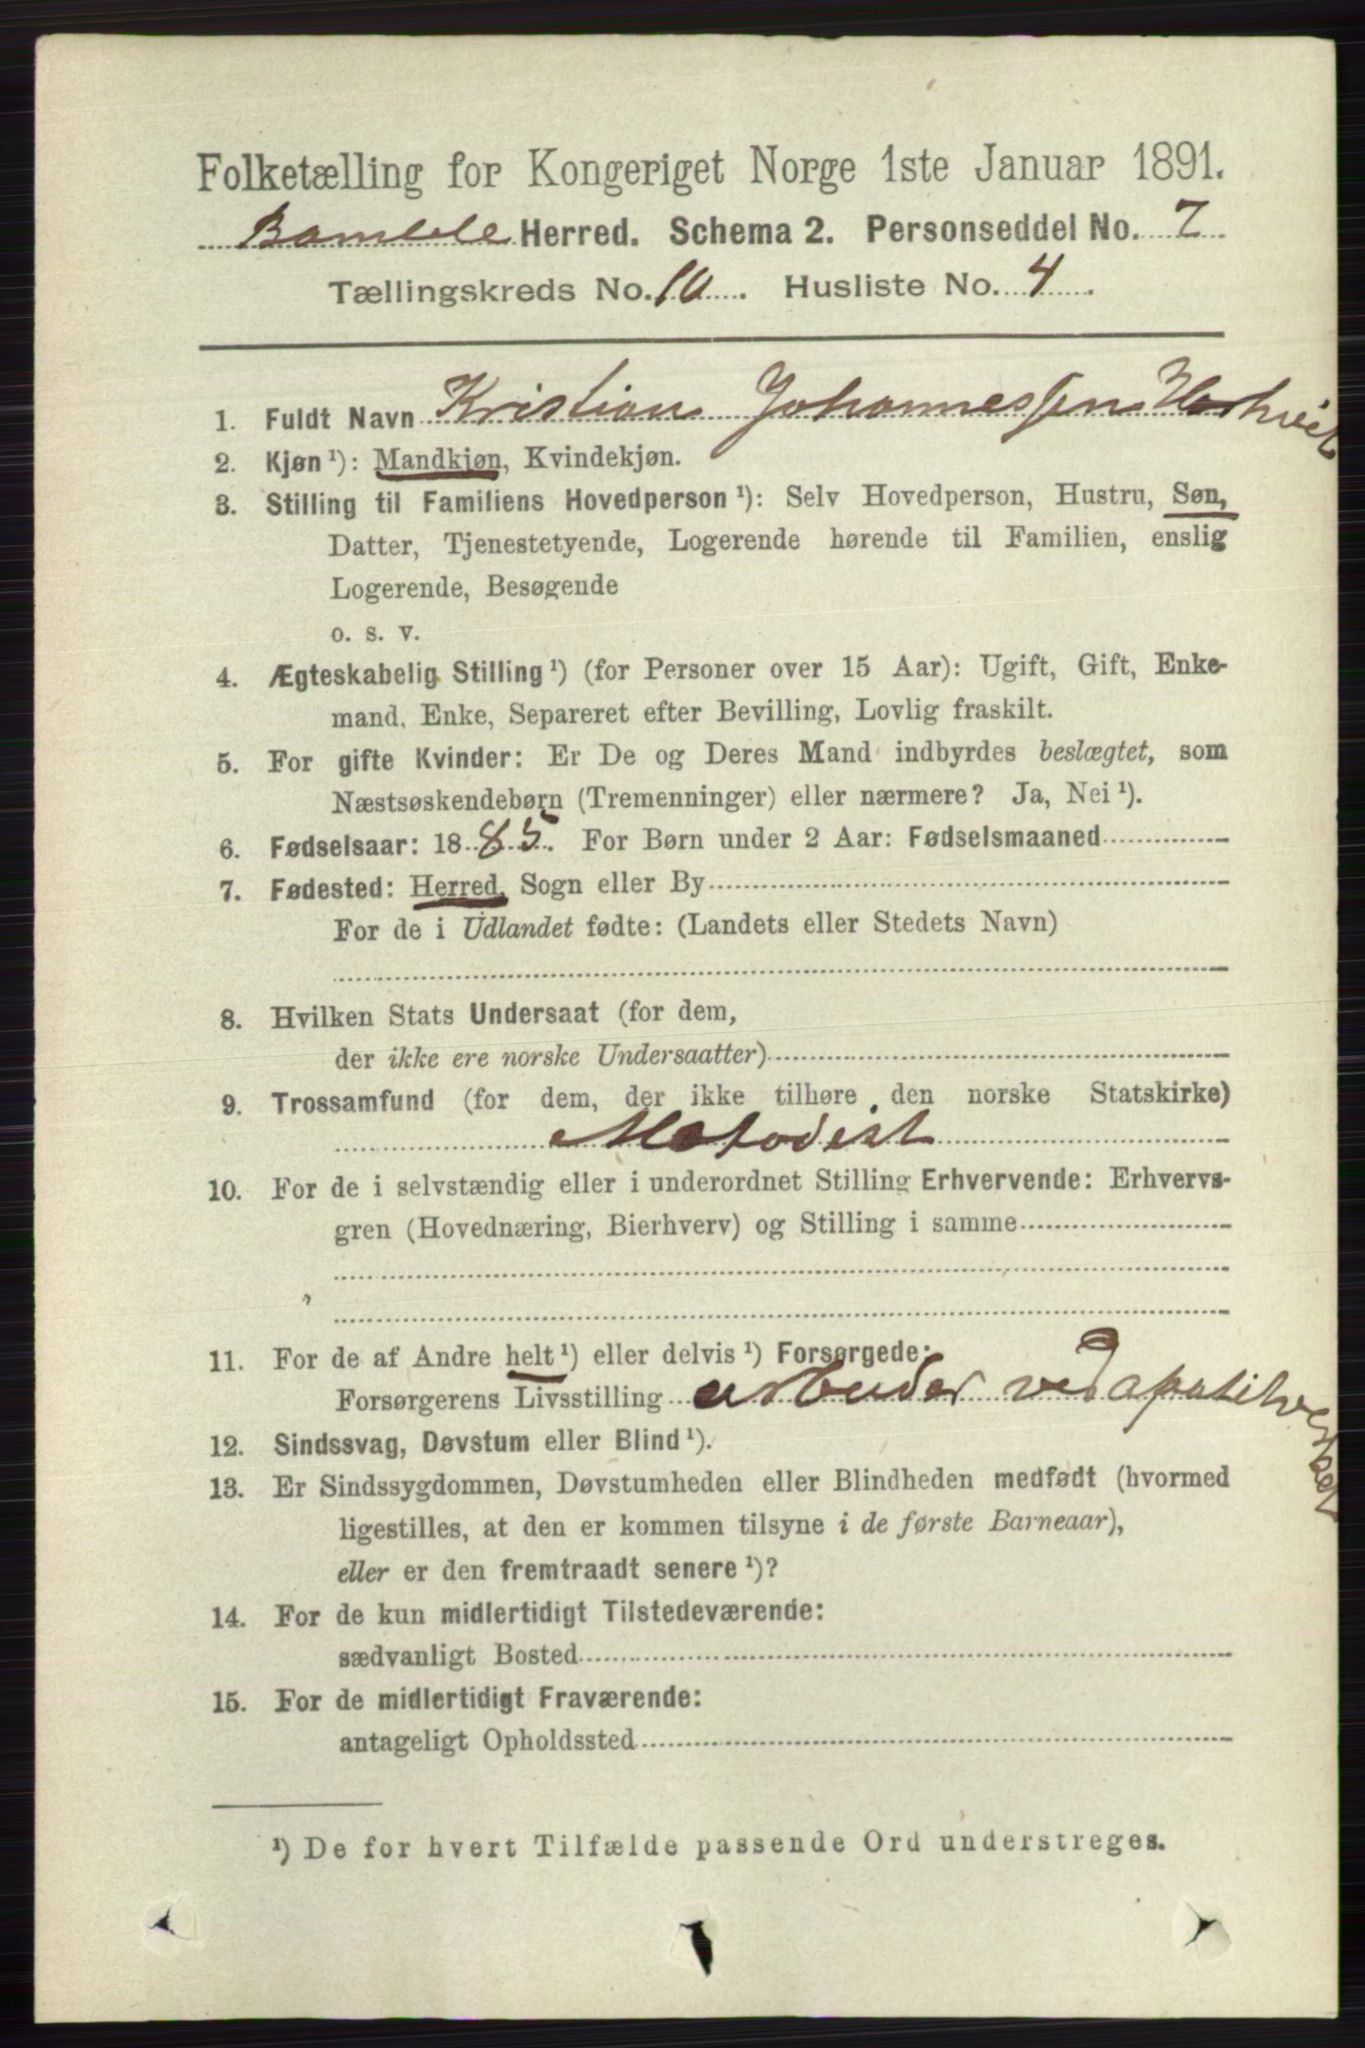 Folketælling for Kongeriget Norge 1ste Januar 1891.
Bamble Herred. Schema 2. Personseddel No. 7
Tællingskreds No. 10. Husliste No. 4.
1. Fuldt Navn Kristian Johannessen
2. Kjøn ¹): Mandkjøn, Kvindekjøn.
3. Stilling til Familiens Hovedperson ¹): Selv Hovedperson, Hustru, Søn,
Datter, Tjenestetyende, Logerende hørende til Familien, enslig
Logerende, Besøgende
o. s. v.
4. Ægteskabelig Stilling ¹) (for Personer over 15 Aar): Ugift, Gift, Enke-
mand, Enke, Separeret efter Bevilling, Lovlig fraskilt.
5. For gifte Kvinder: Er De og Deres Mand indbyrdes beslægtet, som
Næstsøskendebørn (Tremenninger) eller nærmere? Ja, Nei ¹).
6. Fødselsaar: 1885. For Børn under 2 Aar: Fødselsmaaned
7. Fødested: Herred, Sogn eller By
For de i Udlandet fødte: (Landets eller Stedets Navn)
8. Hvilken Stats Undersaat (for dem,
der ikke ere norske Undersaatter)
9. Trossamfund (for dem, der ikke tilhøre den norske Statskirke)
Metodist
10. For de i selvstændig eller i underordnet Stilling Erhvervende: Erhvervs-
gren (Hovednæring, Bierhverv) og Stilling i samme
11. For de af Andre helt ¹) eller delvis ¹) Forsørgede:
Forsørgerens Livsstilling arbeider ved apatitverket
12. Sindssvag, Døvstum eller Blind ¹).
13. Er Sindssygdommen, Døvstumheden eller Blindheden medfødt (hvormed
ligestilles, at den er kommen tilsyne i de første Barneaar),
eller er den fremtraadt senere ¹)?
14. For de kun midlertidigt Tilstedeværende:
sædvanligt Bosted
15. For de midlertidigt Fraværende:
antageligt Opholdssted
¹) De for hvert Tilfælde passende Ord understreges.